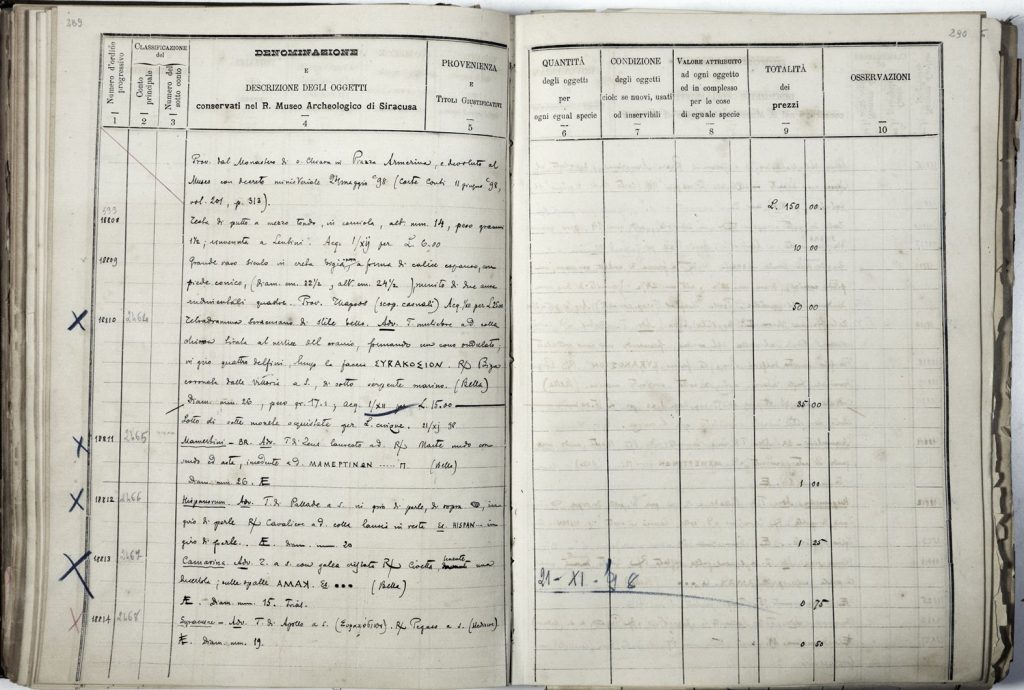 289
Numero d'ordine progressivo
1
CLASSIFICAZIONE del
Conto principale
2
Numero del sotto conto
3
DENOMINAZIONE
E
DESCRIZIONE DEGLI OGGETTI
conservati nel R. Museo Archeologico di Siracusa
4
PROVENIENZA
E
TITOLI GIUSTIFICATIVI
5
Prov. dal Monastero di S. Chiara in Piazza Armerina, e devoluto al
Museo con decreto ministeriale 24 maggio 98 (Corte Conti 11 giugno 98,
vol. 201, p. 313).
18808
Testa di putto a mezzo tondo, in corniola, alt. mm. 14, peso grammi
1½; rinvenuta a Lentini. Acq. 1/xij per L. 6.00
18809
Grande vaso siculo in creta grigia a forma di calice
piede conico, (diam. cm. 22½, alt. cm. 24½), munito di due anse
rudimentali quadre. Prov. Thapsos (scop. casuali) Acq.
18810 2464
Tetradramma siracusano di stile bello. Adv. T. muliebre a d. colla
chioma
vi giro quattro delfini, lungo la faccia ΣYRAKOΣION. R) Biga
coronata dalla Vittoria a s., di sotto serpente marino. (Bella)
Diam. mm. 26, peso gr. 17.1; Acq. 1/XII per L. 15.00
Lotto di sette monete acquistate per L. cinque. 21/xj 98
18811 2465
Mamertini - BR. Adv. T. di Zeus laureato a d. R) Marte nudo con
scudo ed asta, incedente a d. MAMEPTINΩN ..... Π (Bella)
Diam. mm. 26. Æ
18812 2466
Hispanorum. Adv. T. di Pallade a s. in giro di perle, di sopra
giro di perle R) Cavaliere a d. colla lancia in resta Es. HISPAN in
giro di perle. Æ. diam. mm 20
18813 2467
Camarina. Adv. T. a s. con galea crestata R) Civetta, tenente una
lucertola; sulle spalle ΑΜΑΚ. Es ••• (Bella)
Æ. Diam. mm. 15. Trias.
18814 2468
Syracusae - Adv. T. di Apollo a s. R) Pegaso a s. (Mediocre)
Æ. diam. mm. 19.
290
QUANTITÀ
degli oggetti
per
ogni egual specie
6
CONDIZIONE
degli oggetti
cioè: se nuovi, usati
od inservibili
7
VALORE ATTRIBUITO
ad ogni oggetto
ed in complesso
per le cose
di eguale specie
8
TOTALITÀ
dei
prezzi
9
OSSERVAZIONI
10
L. 150 00.
10 00
50 00
35 00
1 00
1 25
21-XI-98
0 75
0 50